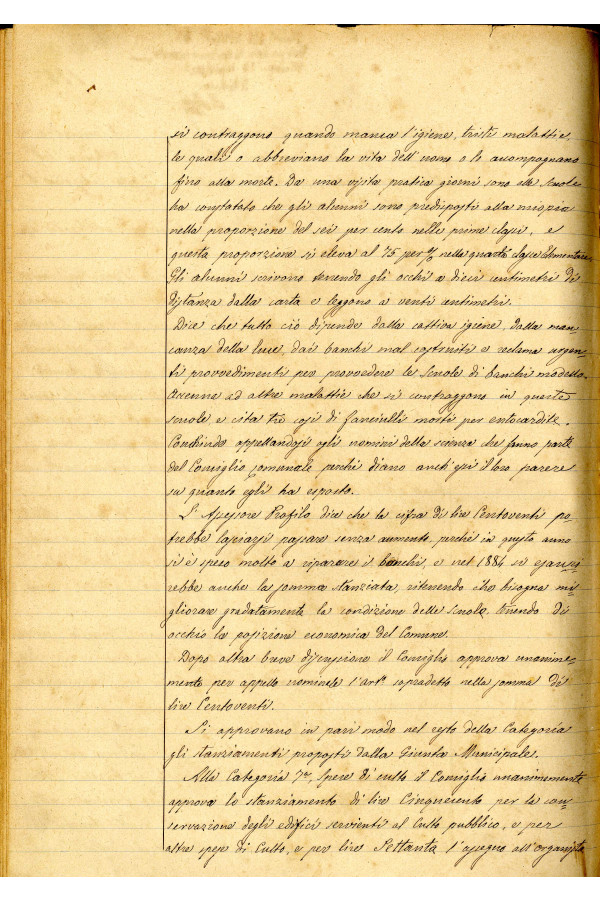 si contraggono quando manca l'igiene, tristi malattie,
le quali o abbreviano la vita dell'uomo o lo accompagnano
fino alla morte. Da una visita pratica giorni sono alle scuole
ha constatato che gli alunni sono predisposti alla miopia
nella proporzione del sei per cento nelle prime classi, e
questa proporzione si eleva al 75 per % nella quarta classe Elementare.
Gli alunni scrivono tenendo gli occhi a dieci centimetri di
distanza dalla carta e leggono a venti centimetri.
Dice che tutto ciò dipende dalla cattiva igiene, dalla man=
canza della luce, dai banchi mal costruiti e reclama urgen=
ti provvedimenti per provvedere le Scuole di banchi modello.
Accenna ad altre malattie che si contraggono in queste
scuole e cita tre casi di fanciulli morti per entocardite.
Conchiude appellandosi agli uomini della scienza che fanno parte
del Consiglio comunale perchè diano anch'essi il loro parere
su quanto egli ha esposto.
L'Assessore Profilo dice che la cifra di lire Centoventi po=
trebbe lasciarsi passare senza aumento, perchè in questo anno
si è speso molto a riparare i banchi, e nel 1884 si esauri=
rebbe anche la somma stanziata, ritenendo che bisogna mi=
gliorare gradatamente la condizione delle scuole, tenendo di
occhio la posizione economica del Comune.
Dopo altra breve discussione il Consiglio approva unanime=
mente per appello nominale l'art.º sopradetto nella somma di
lire Centoventi.
Si approvano in pari modo nel resto della Categoria
gli stanziamenti proposti dalla Giunta Municipale.
Alla Categoria 7ª, Spese di culto il Consiglio unanimemente
approva lo stanziamento di lire Cinquecento per la con=
servazione degli edifici servienti al Culto pubblico, e per
altre spese di Culto, e per lire Settanta l'assegno all'organista